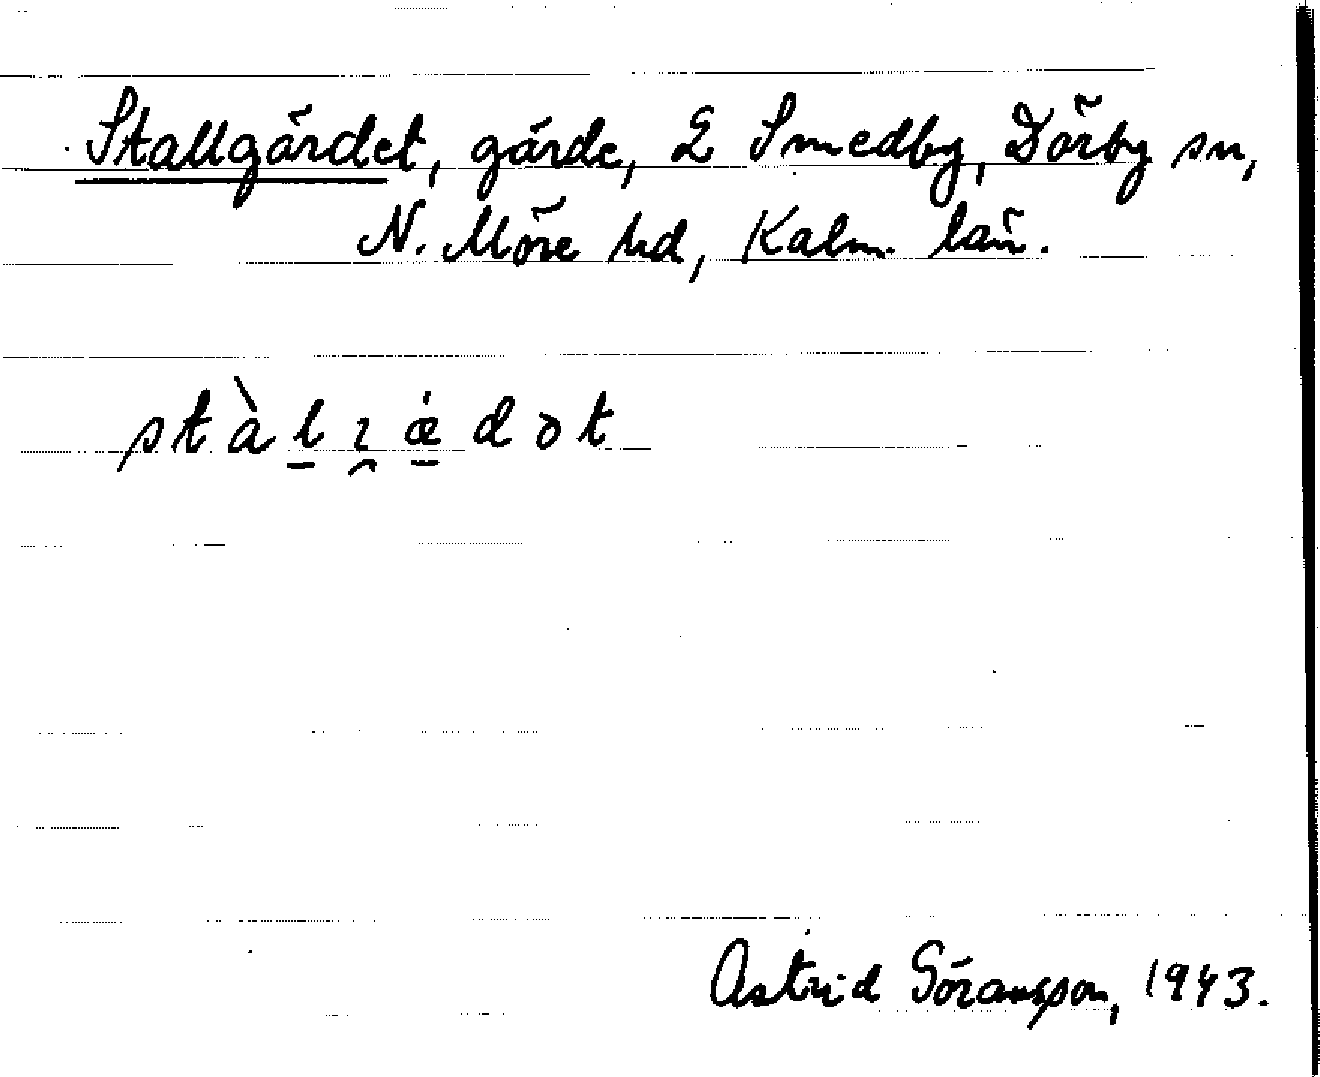 Stallgärdet, gärde, L Smedby, Dörby sn,
N. Möre hd, Kalm. län.
Astrid Göransson, 1943.